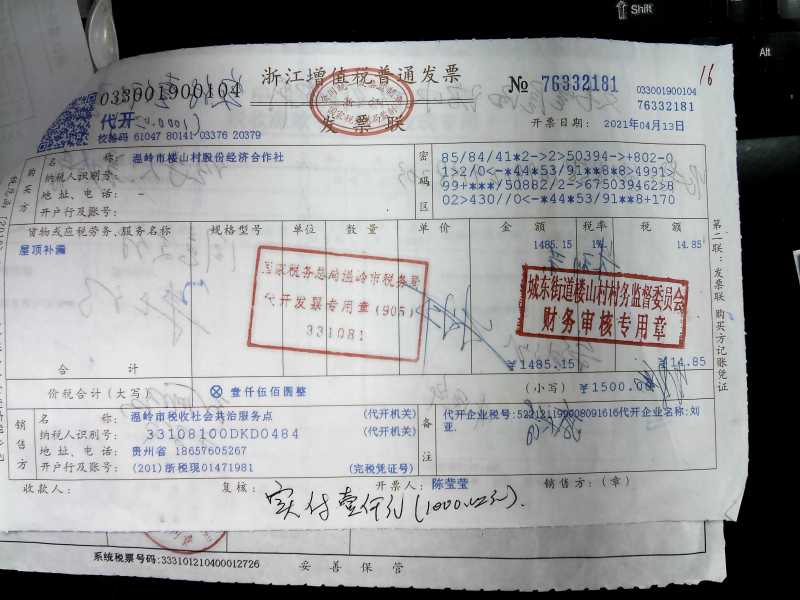 Shift
Alt
16
033001900104
浙江增值税普通发票
№ 76332181
033001900104
76332181
代开
发票联
校验码 61047 80141 03376 20379
开票日期: 2021年04月13日
购买方
名称: 温岭市楼山村股份经济合作社
纳税人识别号:
地址、电话: -
开户行及账号:
密码区
85/84/41*2->2>50394->+802-0
1>2/0<-*44*53/91**8*8>4991>
99+***/50882/2->675039462>8
02>430//0<-*44*53/91**8+170
货物或应税劳务、服务名称 规格型号 单位 数量 单价 金额 税率 税额
屋顶补漏 1485.15 1% 14.85
国家税务总局温岭市税务局
代开发票专用章(905)
331081
城东街道楼山村村务监督委员会
财务审核专用章
合计 ￥1485.15 ￥14.85
价税合计(大写) ⊗ 壹仟伍佰圆整 (小写) ￥1500.00
销售方
名称: 温岭市税收社会共治服务点 (代开机关)
纳税人识别号: 33108100DKD0484 (代开机关)
地址、电话: 贵州省 18657605267
开户行及账号: (201)浙税现01471981 (完税凭证号)
备注
代开企业税号:522121199008091616代开企业名称:刘
亚.
收款人: 复核: 开票人: 陈莹莹 销售方:(章)
第二联:发票联 购买方记账凭证
实付壹仟元(1000.00元).
系统税票号码:333101210400012726
妥善保管